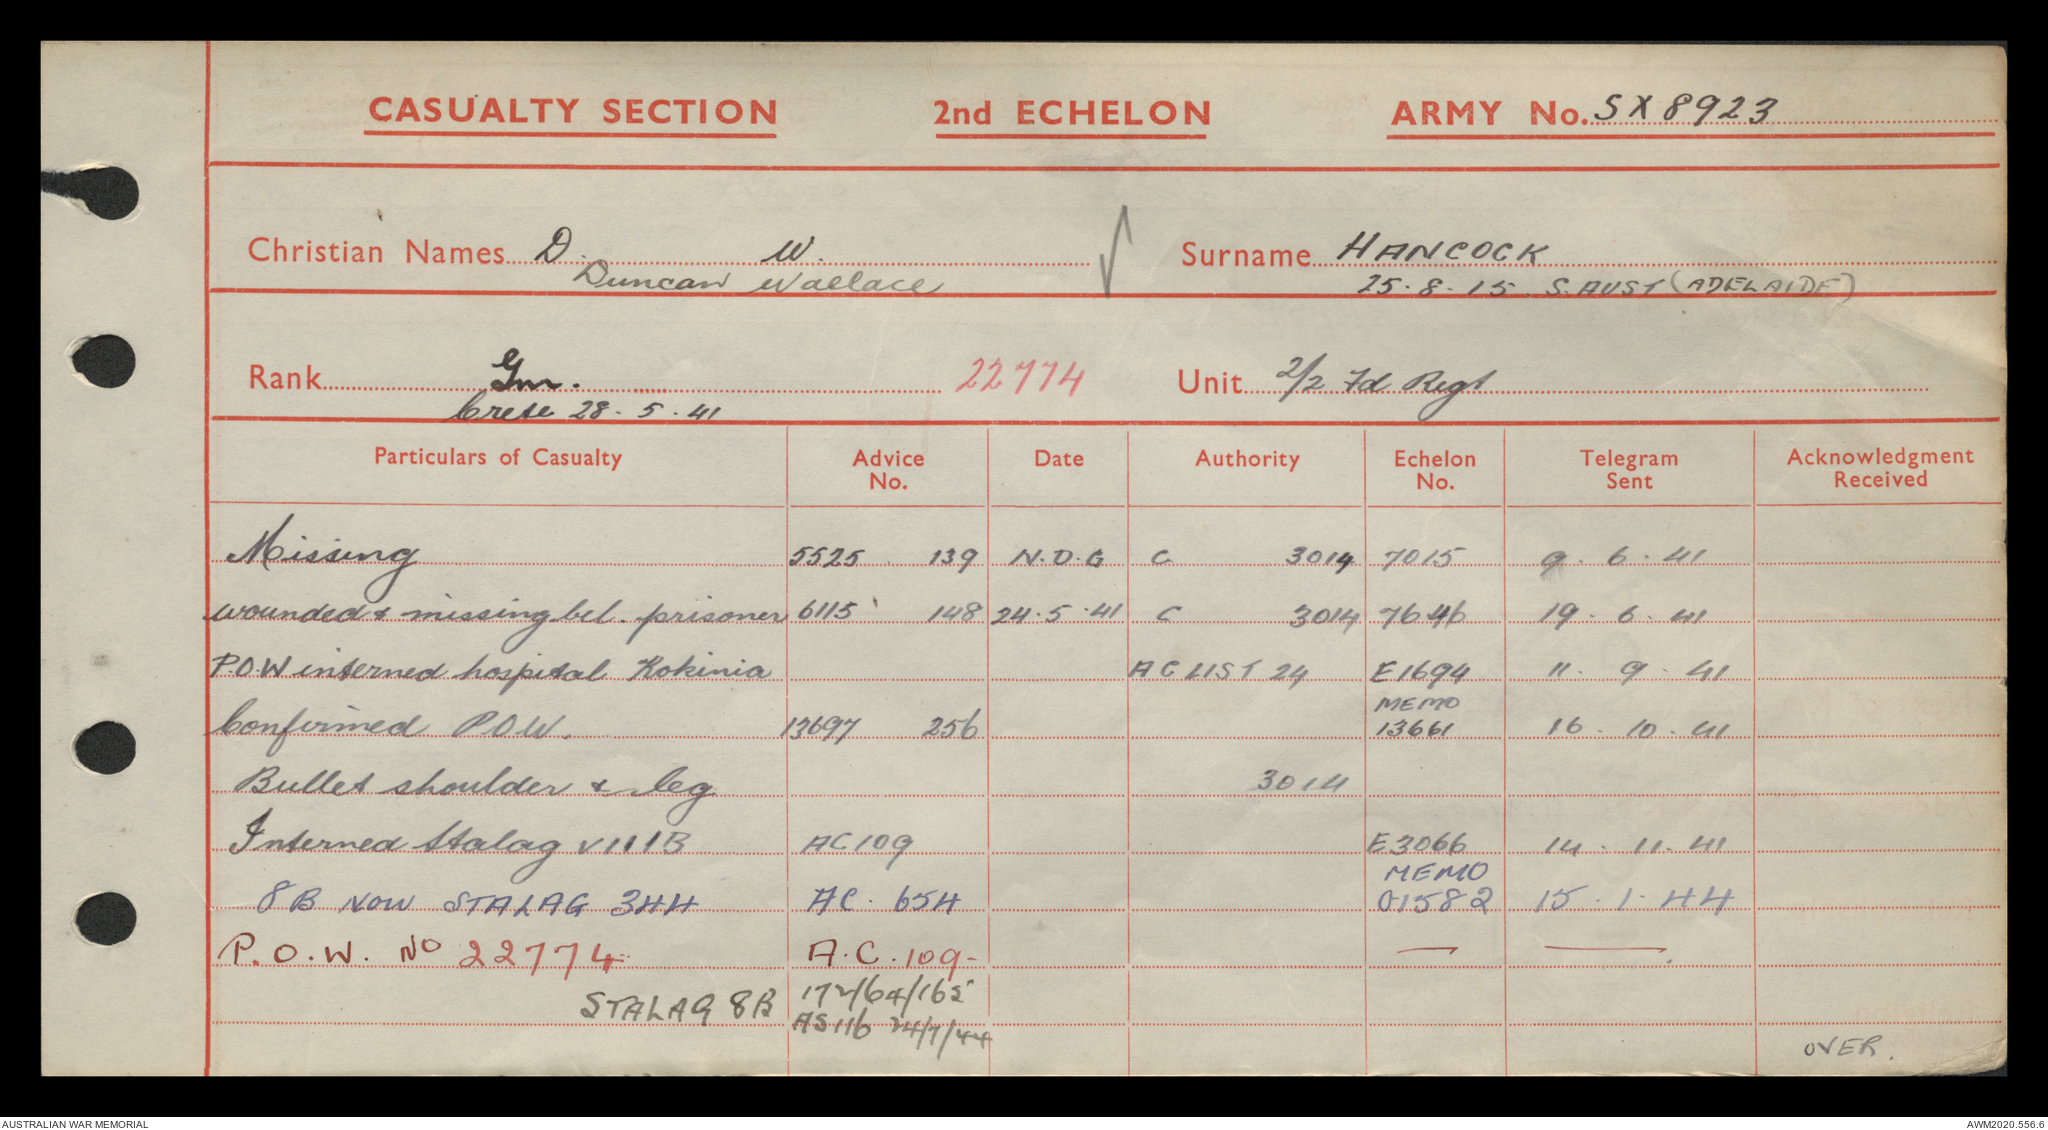 CASUALTY SECTION 2nd ECHELON ARMY No. SX8923
Christian Names D. W. Surname HANCOCK
Duncan Wallace 25.8.15 S. AUST (ADELAIDE)
Rank Gnr. 22774 Unit 2/2 Fd Regt
Crete 28.5.41
Particulars of Casualty Advice No. Date Authority Echelon No. Telegram Sent Acknowledgment Received
Missing 5525 139 N.D.G C 3014 7015 9.6.41
wounded & missing bel. prisoner 6115 148 24.5.41 C 3014 7646 19.6.41
P.O.W interned hospital Kokinia AC LIST 24 E1694 11.9.41
MEMO
Confirmed P.O.W. 13697 256 13661 16.10.41
Bullet shoulder & leg 3014
Interned Stalag V111B AC 109 E3066 14.11.41
MEMO
8B NOW STALAG 344 AC. 654 01582 15.1.44
P.O.W. No 22774 A.C. 109- — —
STALAG 8B 172/64/165
AS116 24/7/44
OVER.
AUSTRALIAN WAR MEMORIAL AWM2020.556.6